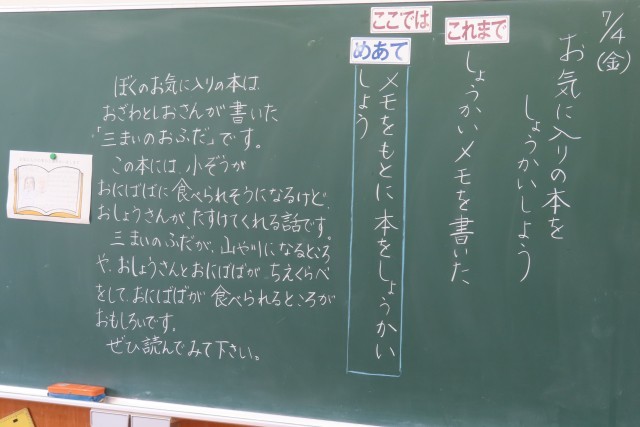 7/4
(金)
お気に入りの本を
しょうかいしよう
これまで
しょうかいメモを書いた
ここでは
めあて
メモをもとに本をしょうかい
しよう
ぼくのお気に入りの本は、
おざわとしおさんが書いた
「三まいのおふだ」です。
この本には、小ぞうが
おにばばに食べられそうになるけど、
おしょうさんが、たすけてくれる話です。
三まいのふだが、山や川になるところ
や、おしょうさんとおにばばが、ちえくらべ
をして、おにばばが食べられるところが
おもしろいです。
ぜひ読んでみて下さい。